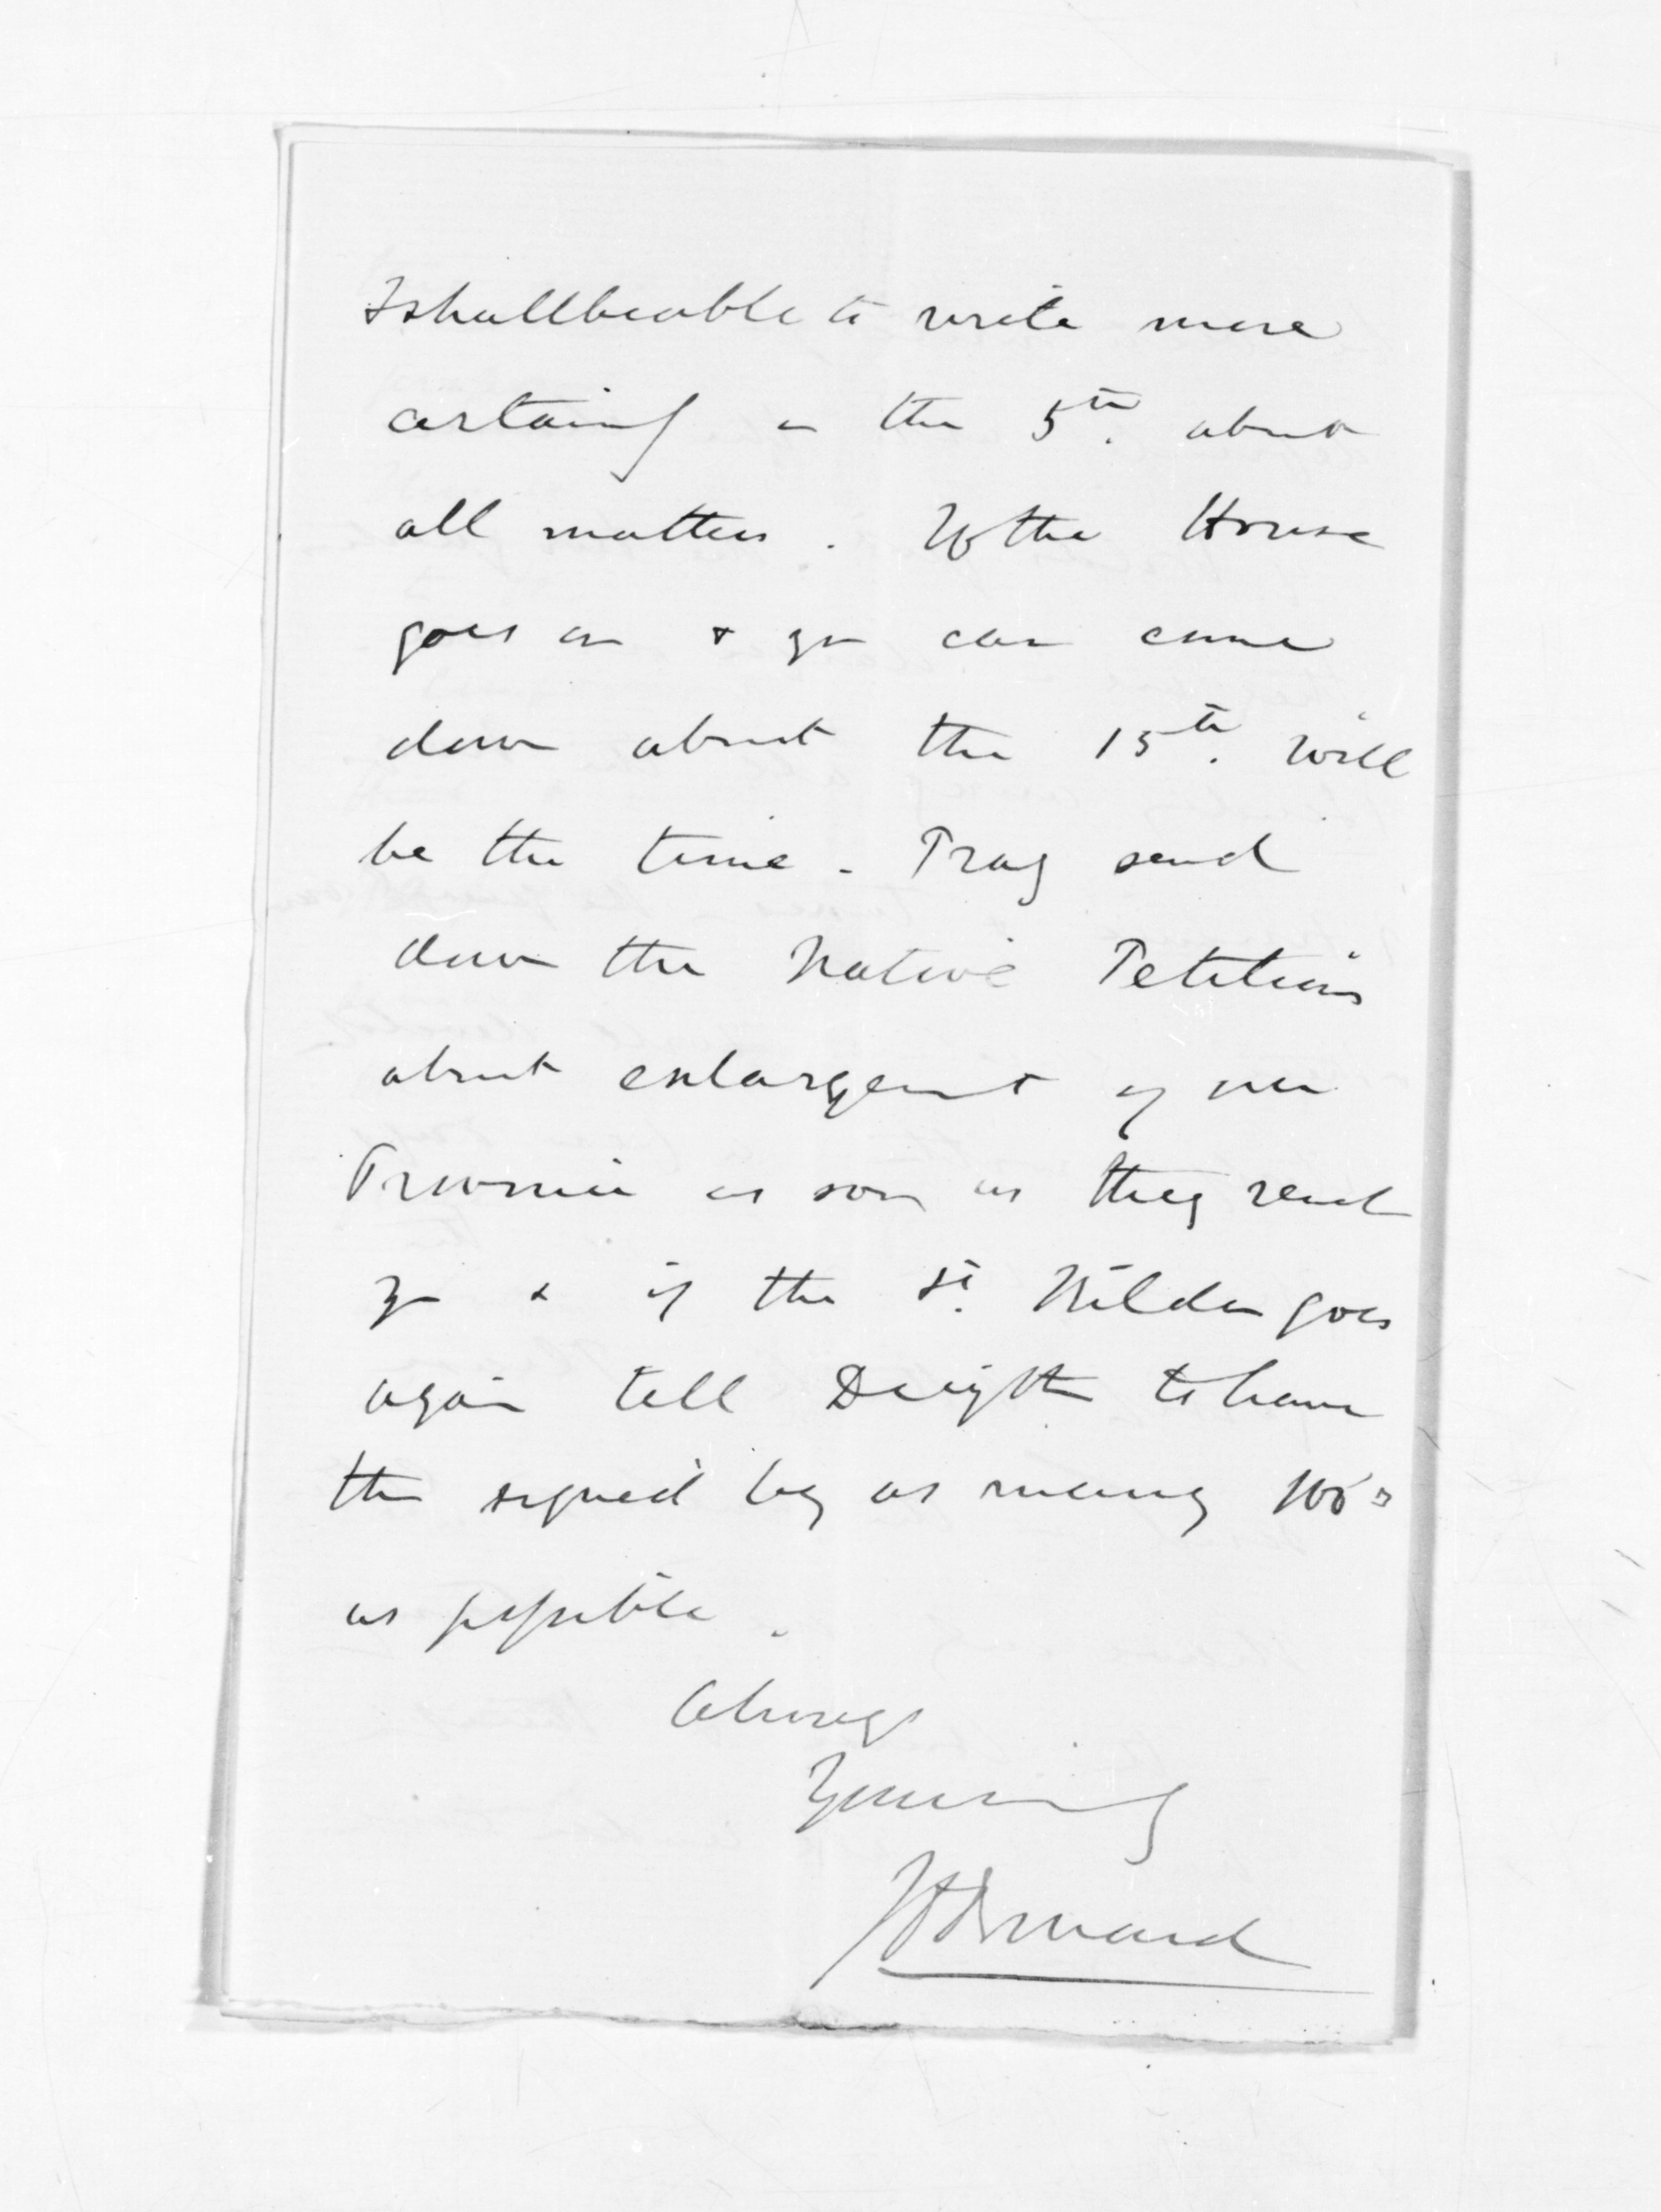 I shall be able to write more
certainly on the 5th. about
all matters. If the House
goes on & you can come
down about the 15th. will
be the time. Pray send
down the Native Petitions
about enlargement of our
Province as soon as they reach
you & if the St. Kilda goes
again tell Deighton to have
them signed by as many 100's
as possible.
Always
Yours sincerely
J D Ormond